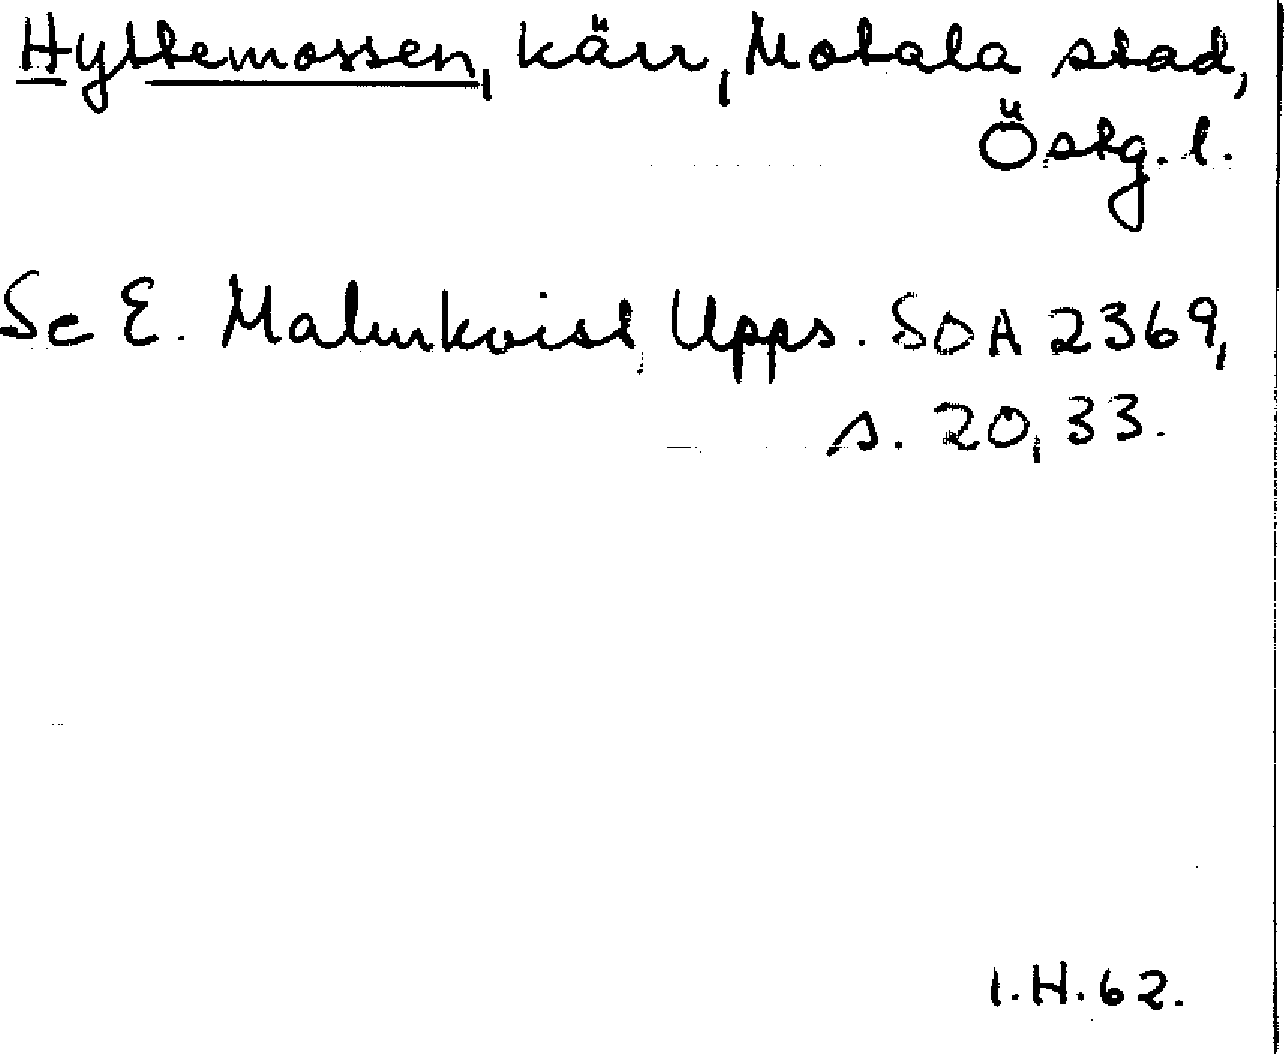 Hyttemossen, kärr, Motala stad,
Östg. l.
Se E. Malmkvist, Upps. SOA 2369,
s. 20, 33.
I.H.62.